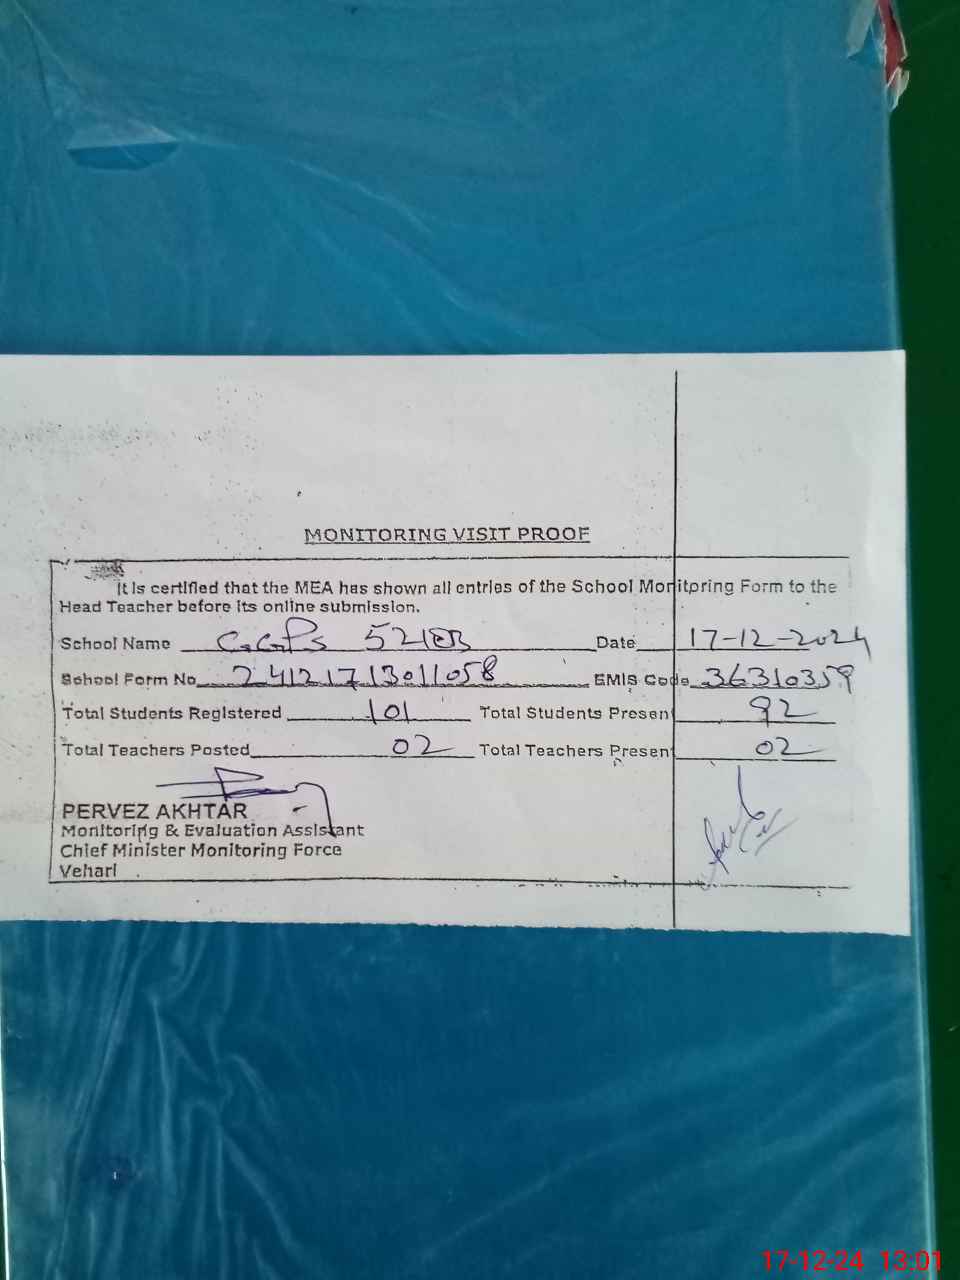 MONITORING VISIT PROOF
It is certified that the MEA has shown all entries of the School Monitoring Form to the
Head Teacher before its online submission.
School Name G.G.P.S 52/EB Date 17-12-2024
School Form No 24121713011058 EMIS Code 36310359
Total Students Registered 101 Total Students Present 92
Total Teachers Posted 02 Total Teachers Present 02
PERVEZ AKHTAR
Monitoring & Evaluation Assistant
Chief Minister Monitoring Force
Vehari
17-12-24 13:01